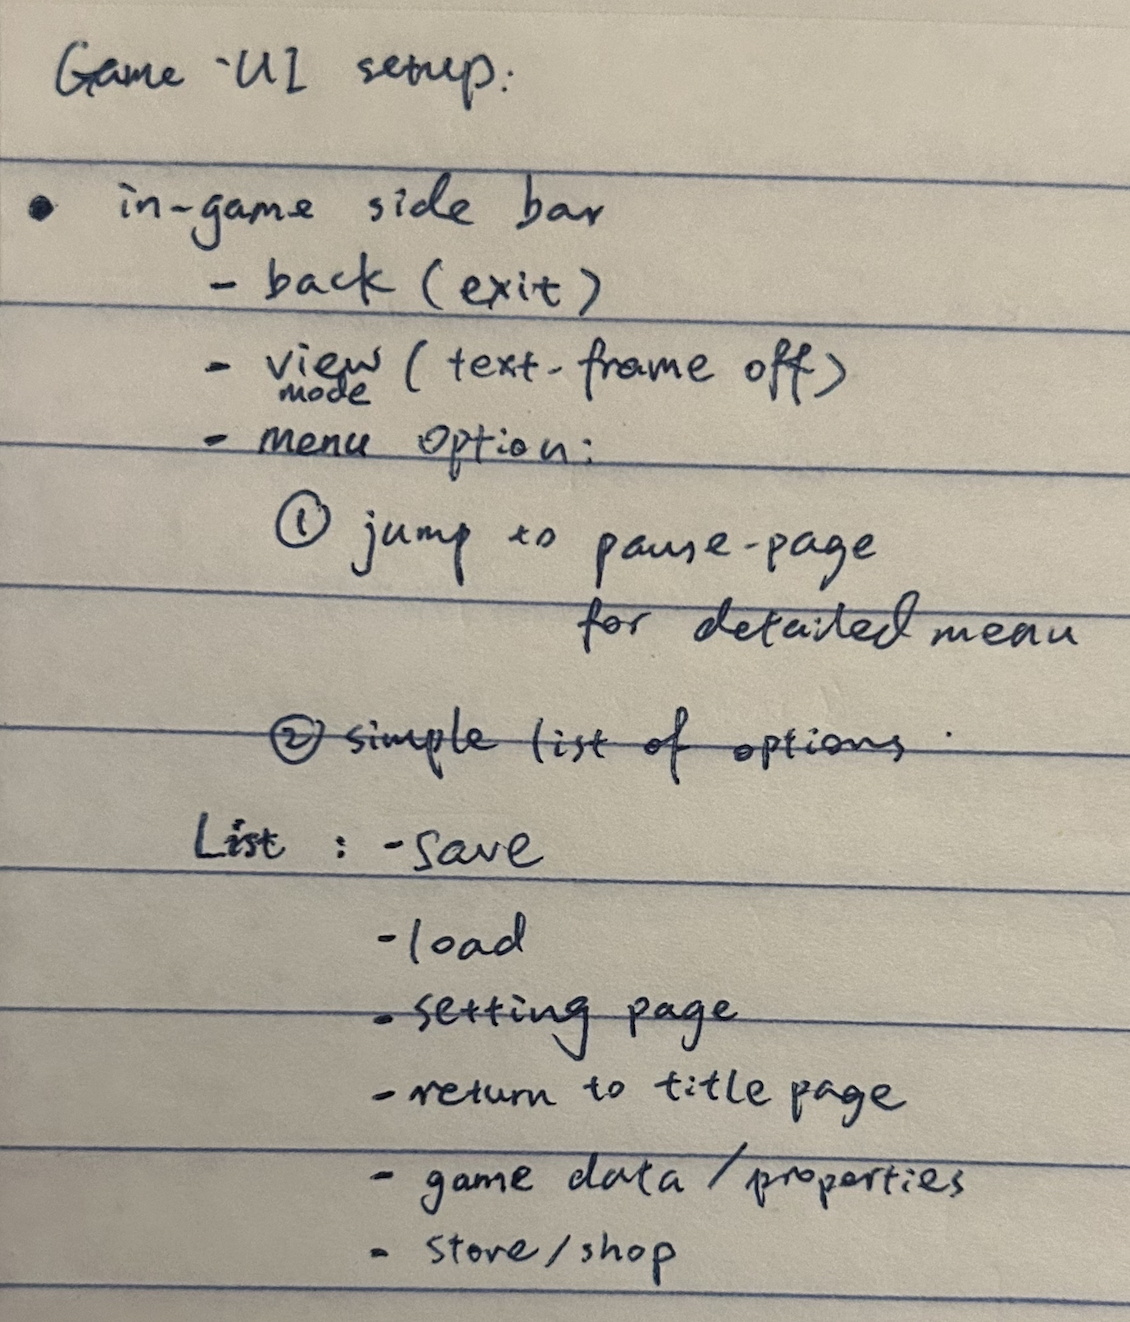 Game UI setup:
• in-game side bar
- back (exit)
- view (text-frame off)
mode
- menu option:
① jump to pause-page
for detailed menu
② simple list of options
List : - save
- load
- setting page
- return to title page
- game data / properties
- store / shop